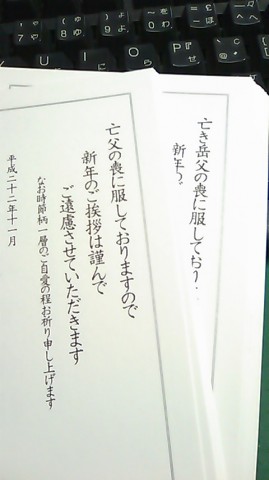 亡き岳父の喪に服しており
新年
亡父の喪に服しておりますので
新年のご挨拶は謹んで
ご遠慮させていただきます
なお時節柄一層のご自愛の程お祈り申し上げます
平成二十二年十一月